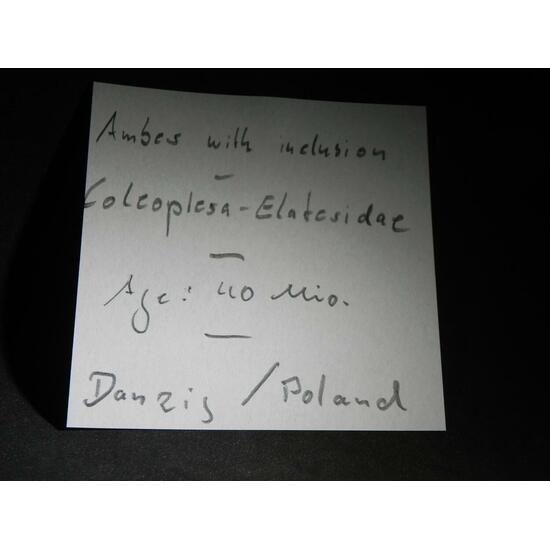 Amber with inclusion
–
Coleoptera-Elateridae
–
Age: 40 Mio.
–
Danzig / Poland